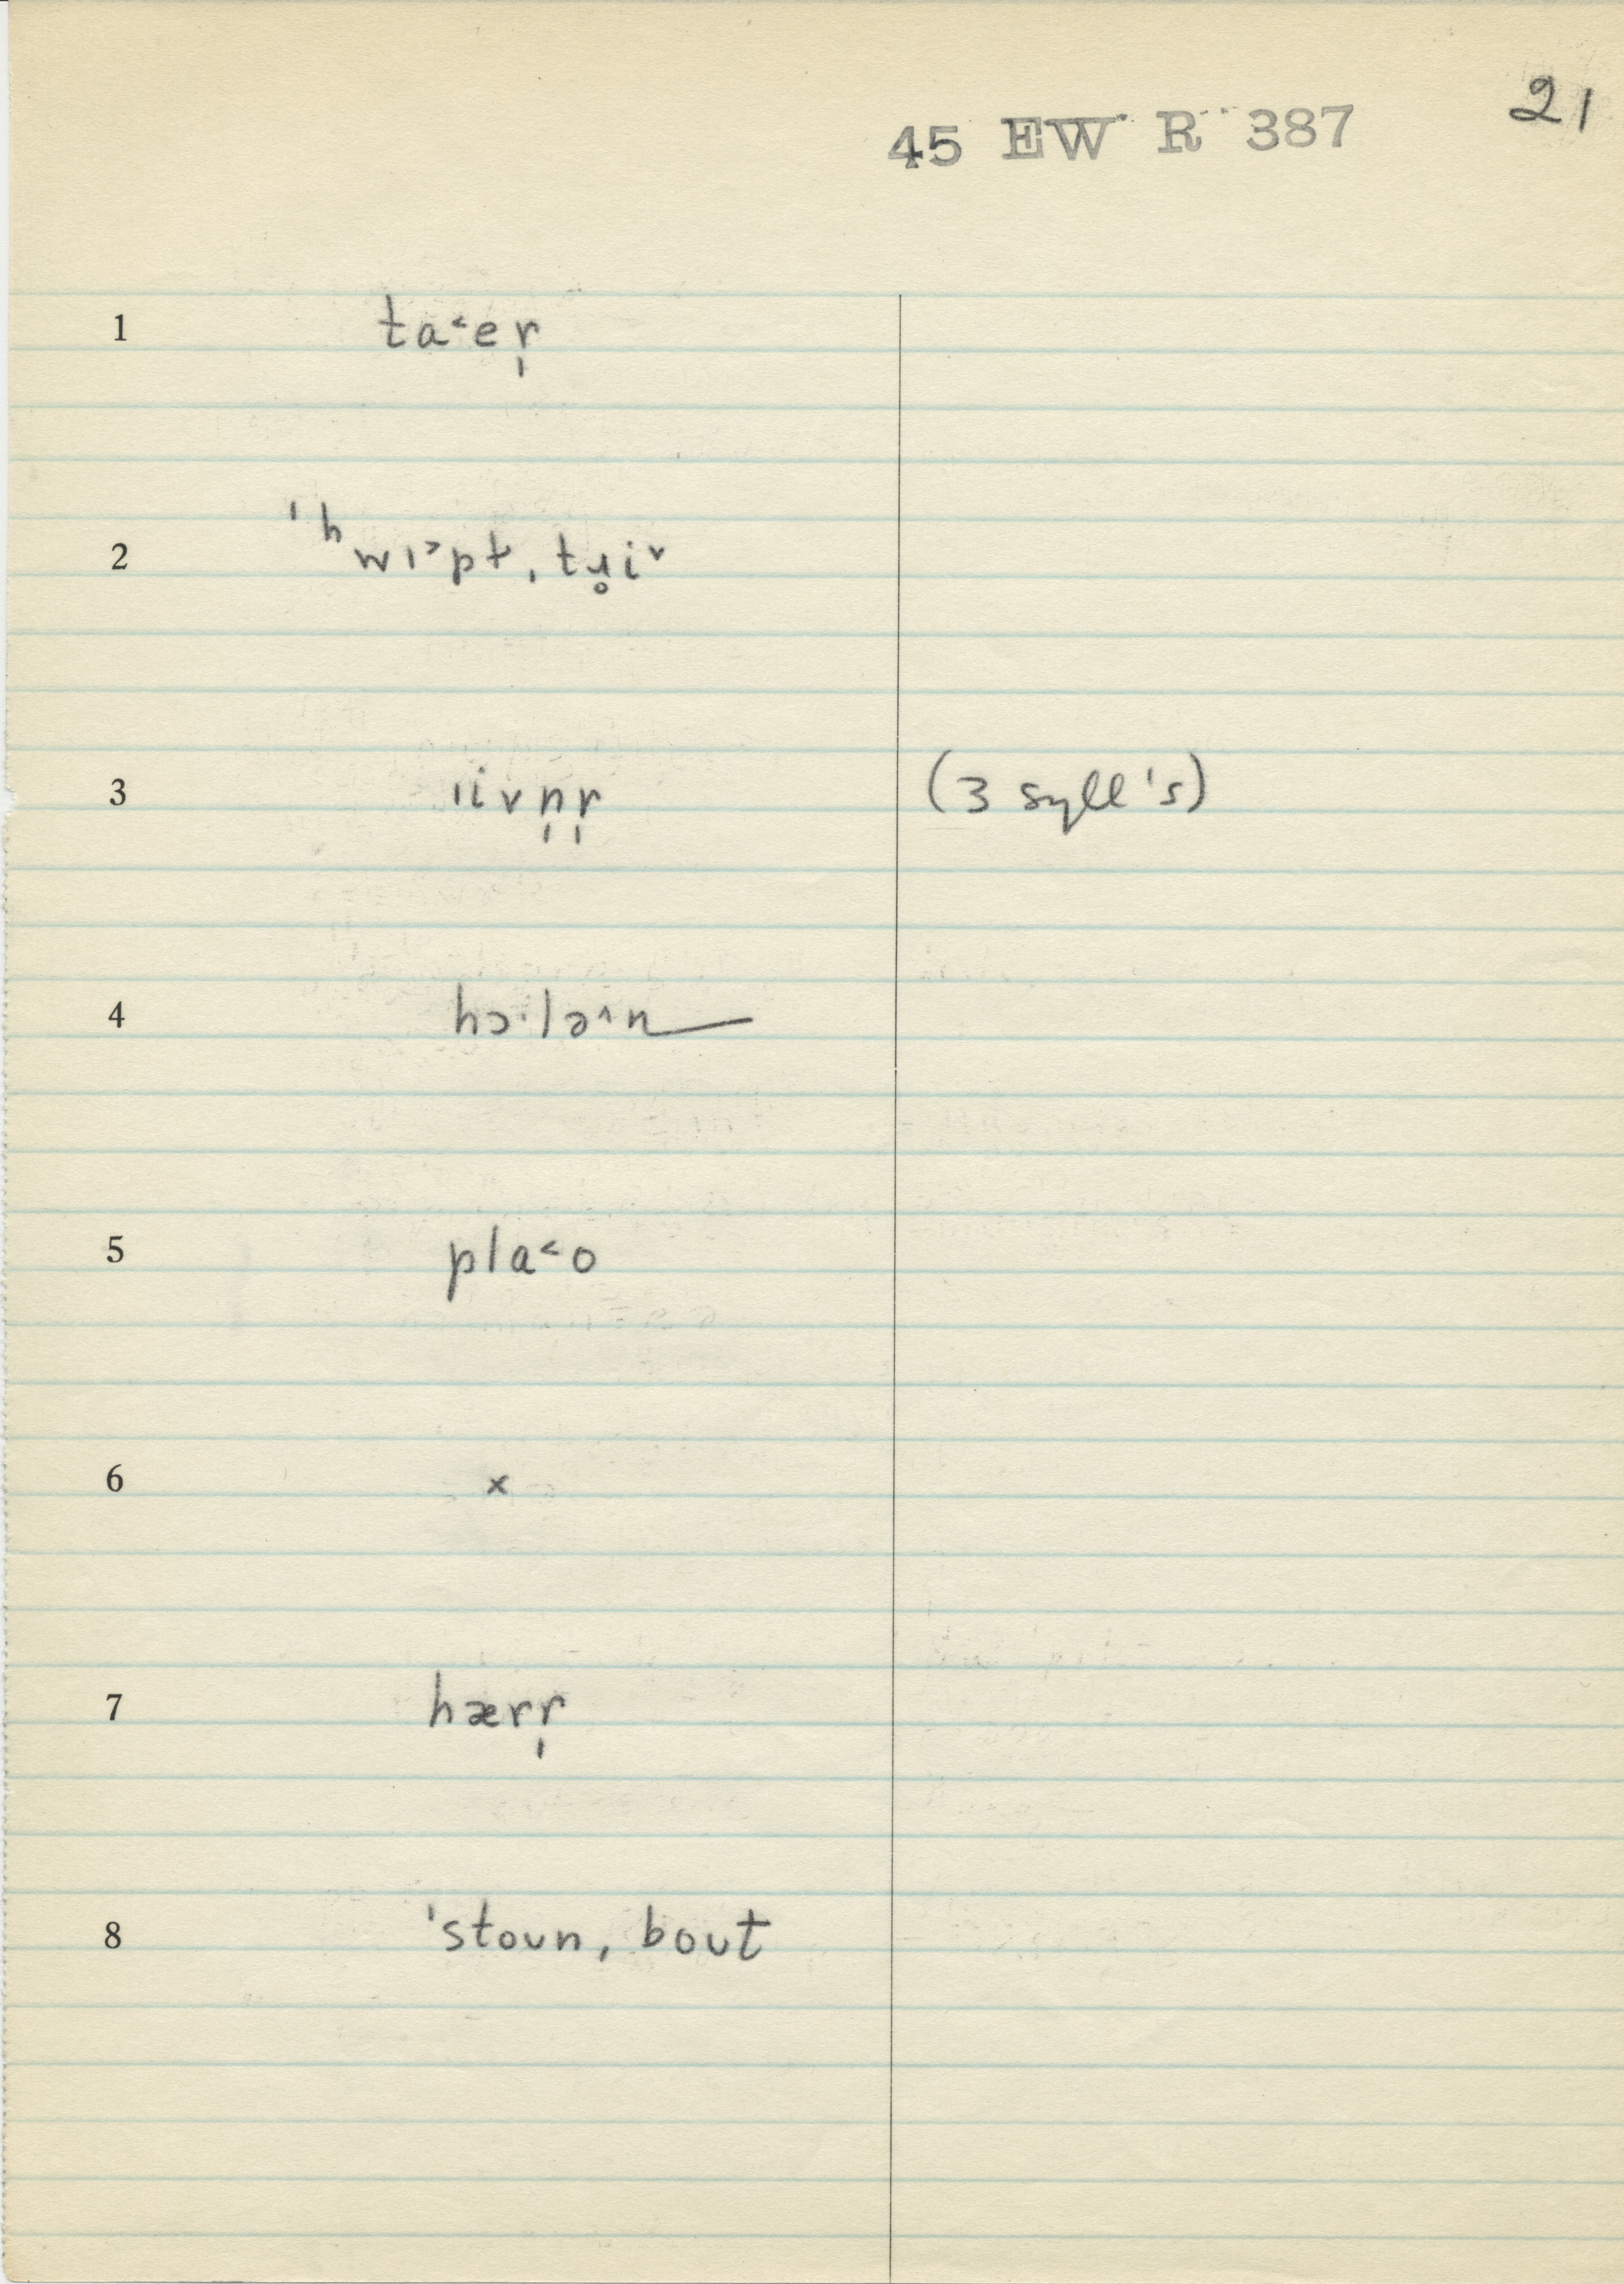 45 EW R 387
21
1 ta˂er̩
2 ˈʰwɪ˃pt, tɹ̥i˅
3 ɪivn̩r̩ (3 syll's)
4 hɔ·lə˄n
5 pla˂o
6 x
7 hærr̩
8 ˈstoun, bout